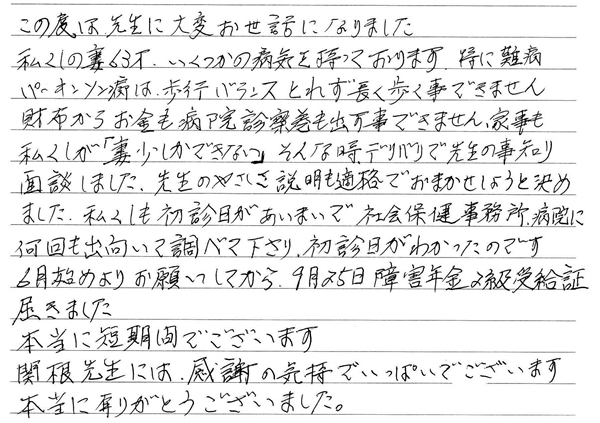 この度は先生に大変お世話になりました
私くしの妻63才、いくつかの病気を持っております、特に難病
パーキンソン病は、歩行バランスとれず長く歩く事できません
財布からお金も病院診察券も出す事できません、家事も
私くしが「妻少しかできない」そんな時デリバリで先生の事知り
面談しました、先生のやさしさ説明も適格でおまかせしようと決め
ました、私くしも初診日があいまいで社会保健事務所、病院に
何回も出向いて調べて下さり、初診日がわかったのです
6月始めよりお願いしてから、9月25日障害年金2級受給証
届きました
本当に短期間でございます
関根先生には、感謝の気持でいっぱいでございます
本当に有りがとうございました。